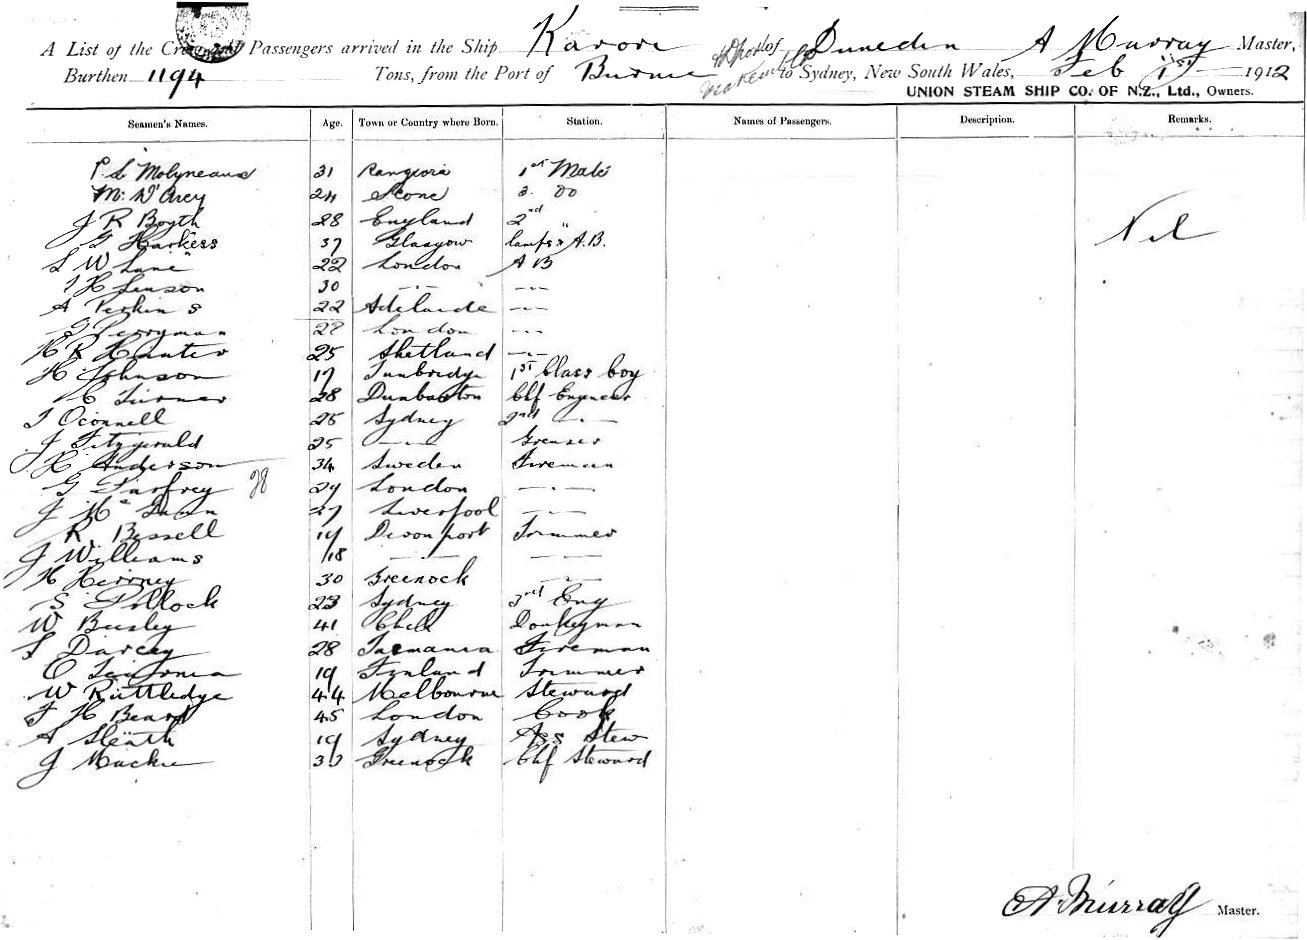 A List of the Crew and Passengers arrived in the Ship Karori of Dunedin A Murray Master,
Burthen 1194 Tons, from the Port of Burnie to Sydney, New South Wales, Feb 1st 1912
UNION STEAM SHIP CO. OF N.Z., Ltd., Owners.
Seamen's Names. Age. Town or Country where Born. Station. Names of Passengers. Description. Remarks.
P. L Molyneaux 31 Rangiora 1st Mate
M. D'Arcy 24 Scone 3. Do
J R Boyth 28 England 2nd "
G Harkess 37 Glasgow lamps & A.B. Nil
L W Lane 22 London A B
T H Lenson 30 -·- -·-
A Perkins 22 Adelaide -·-
G Perryman 22 London -·-
H R Hunter 25 Shetland -·-
H Johnson 17 Tunbridge 1st Class boy
C Turner 28 Dunbarton Chf Engineer
T Oconnell 25 Sydney 2nd -·-
J Fitzgerald 25 -·- Greaser
H Anderson 34 Sweden Fireman
G Parfrey 29 London -·-
J Mc 27 Liverpool -·-
R. Bissell 19 Devonport Trimmer
J Williams 18 -·- -·-
H 30 Greenock -·-
S Pollock 23 Sydney 3rd Eng
W Beesley 41 Chili Donkeyman
F Darcey 28 Tasmania Fireman
O 19 Finland Trimmer
W Ruttledge 44 Melbourne Steward
F H Beard 45 London Cook
A Sleath 19 Sydney Ass Stew
J Mackie 30 Greenock Chf Steward
A. Murray Master.